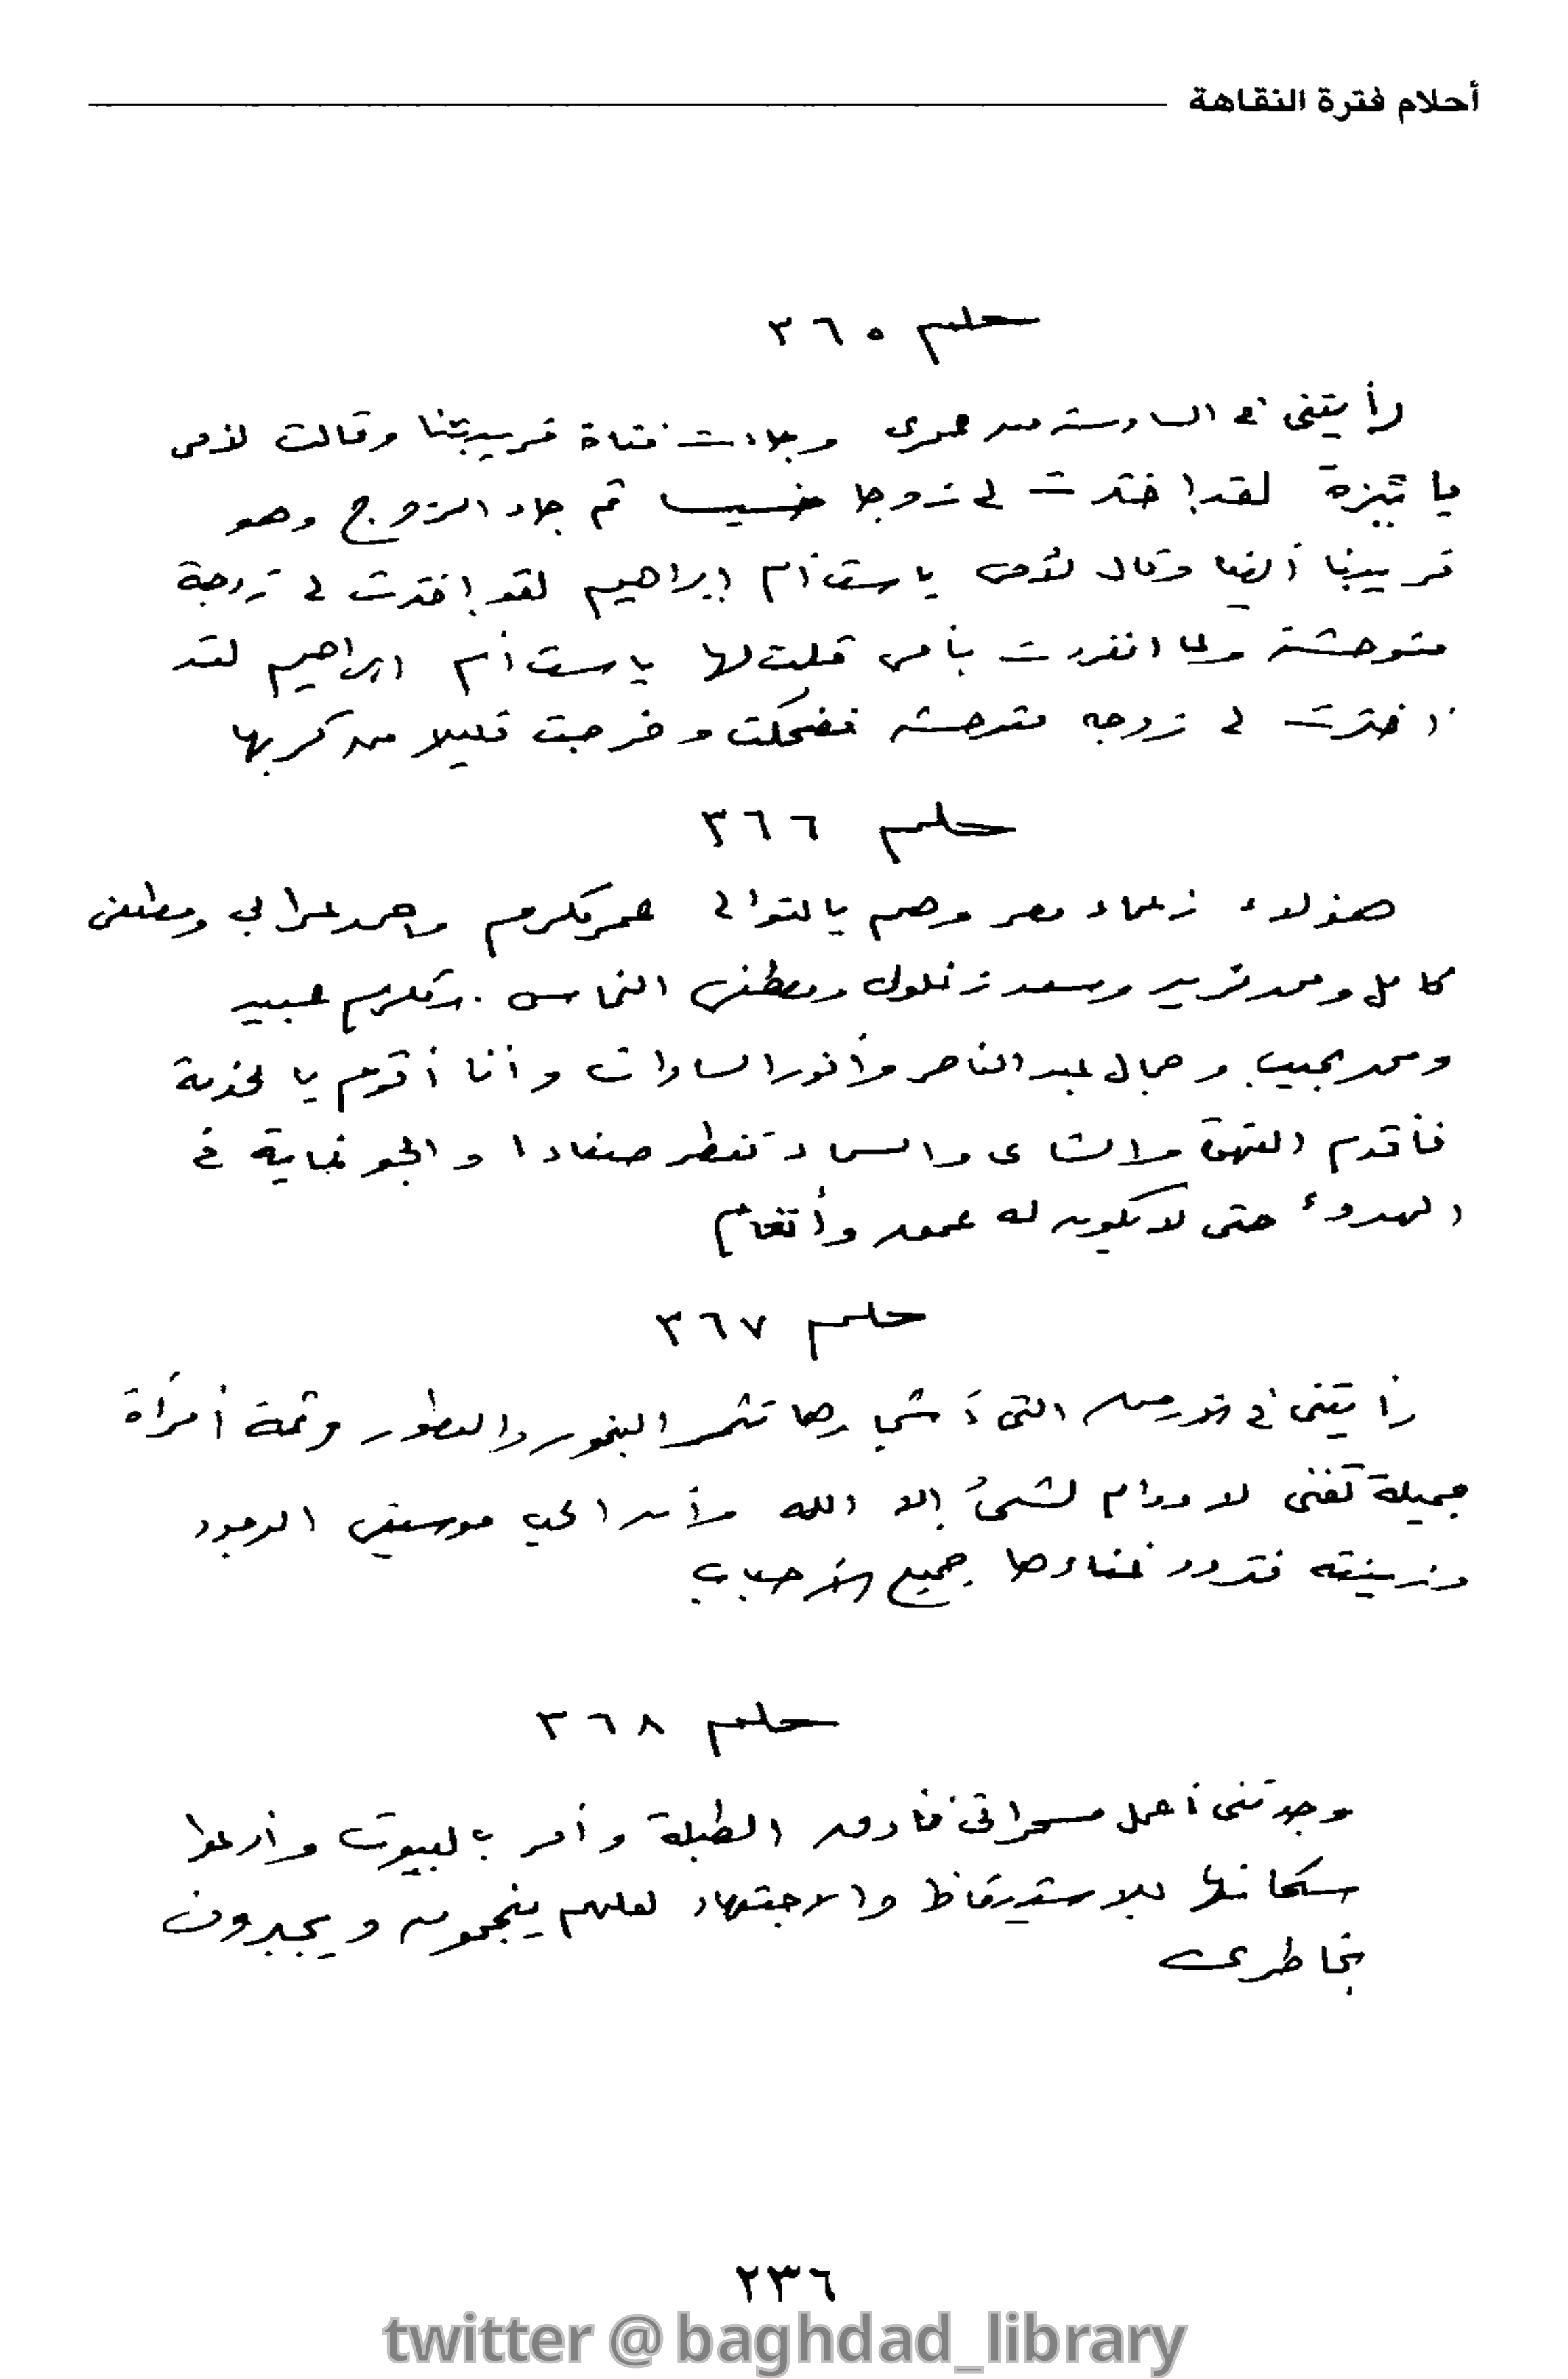 أحلام فترة النقاهة
حلم ٣٦٥
رأيتنى فى السادسة من عمرى وجاءت فتاة قريبتنا وقالت لأمى
يا تيزة لقد اخترت لى زوجا خسيسا ثم جاء الزوج وهو
قريبنا أيضا وقال لأمى يا ست أم إبراهيم لقد إخترت لى زوجة
متوحشة ولما انفردت بأمى قلت لها يا ست أم ابراهيم لقد
اخترت لى زوجه متوحشه فضحكت وخرجت قليلا من كربها
حلم ٣٦٦
هؤلاء زعماء مصر وهم بالتوالى عمر مكرم وأحمد عرابى ومصطفى
كامل ومحمد فريد وسعد زغلول ومصطفى النحاس ومكرم عبيد
ومحمد نجيب وجمال عبد الناصر وأنور السادات وأنا أقوم بالخدمة
فأقدم القهوة والشاى والسماء تمطر ضفادا والجو غاية فى
الهدوء حتى لا يكون له عمق وأنغام
حلم ٣٦٧
رأيتنى فى التى أشجارها تثمر البخور والعطور وثمة أمرأة
جميلة تغنى لا دوام لشىء إلا الله وأن الحب موسيقى الوجود
وزينته فتردد غناءها جميع الأحباب
حلم ٣٦٨
وجدتنى أعمل مسحراتى فأدق الطبلة وأمر بالبيوت وأدعوا
سكانها للاستيقاظ والاجتهاد لعلهم ينجحون ويجبرون
بخاطرى
٢٣٦
twitter @baghdad_library